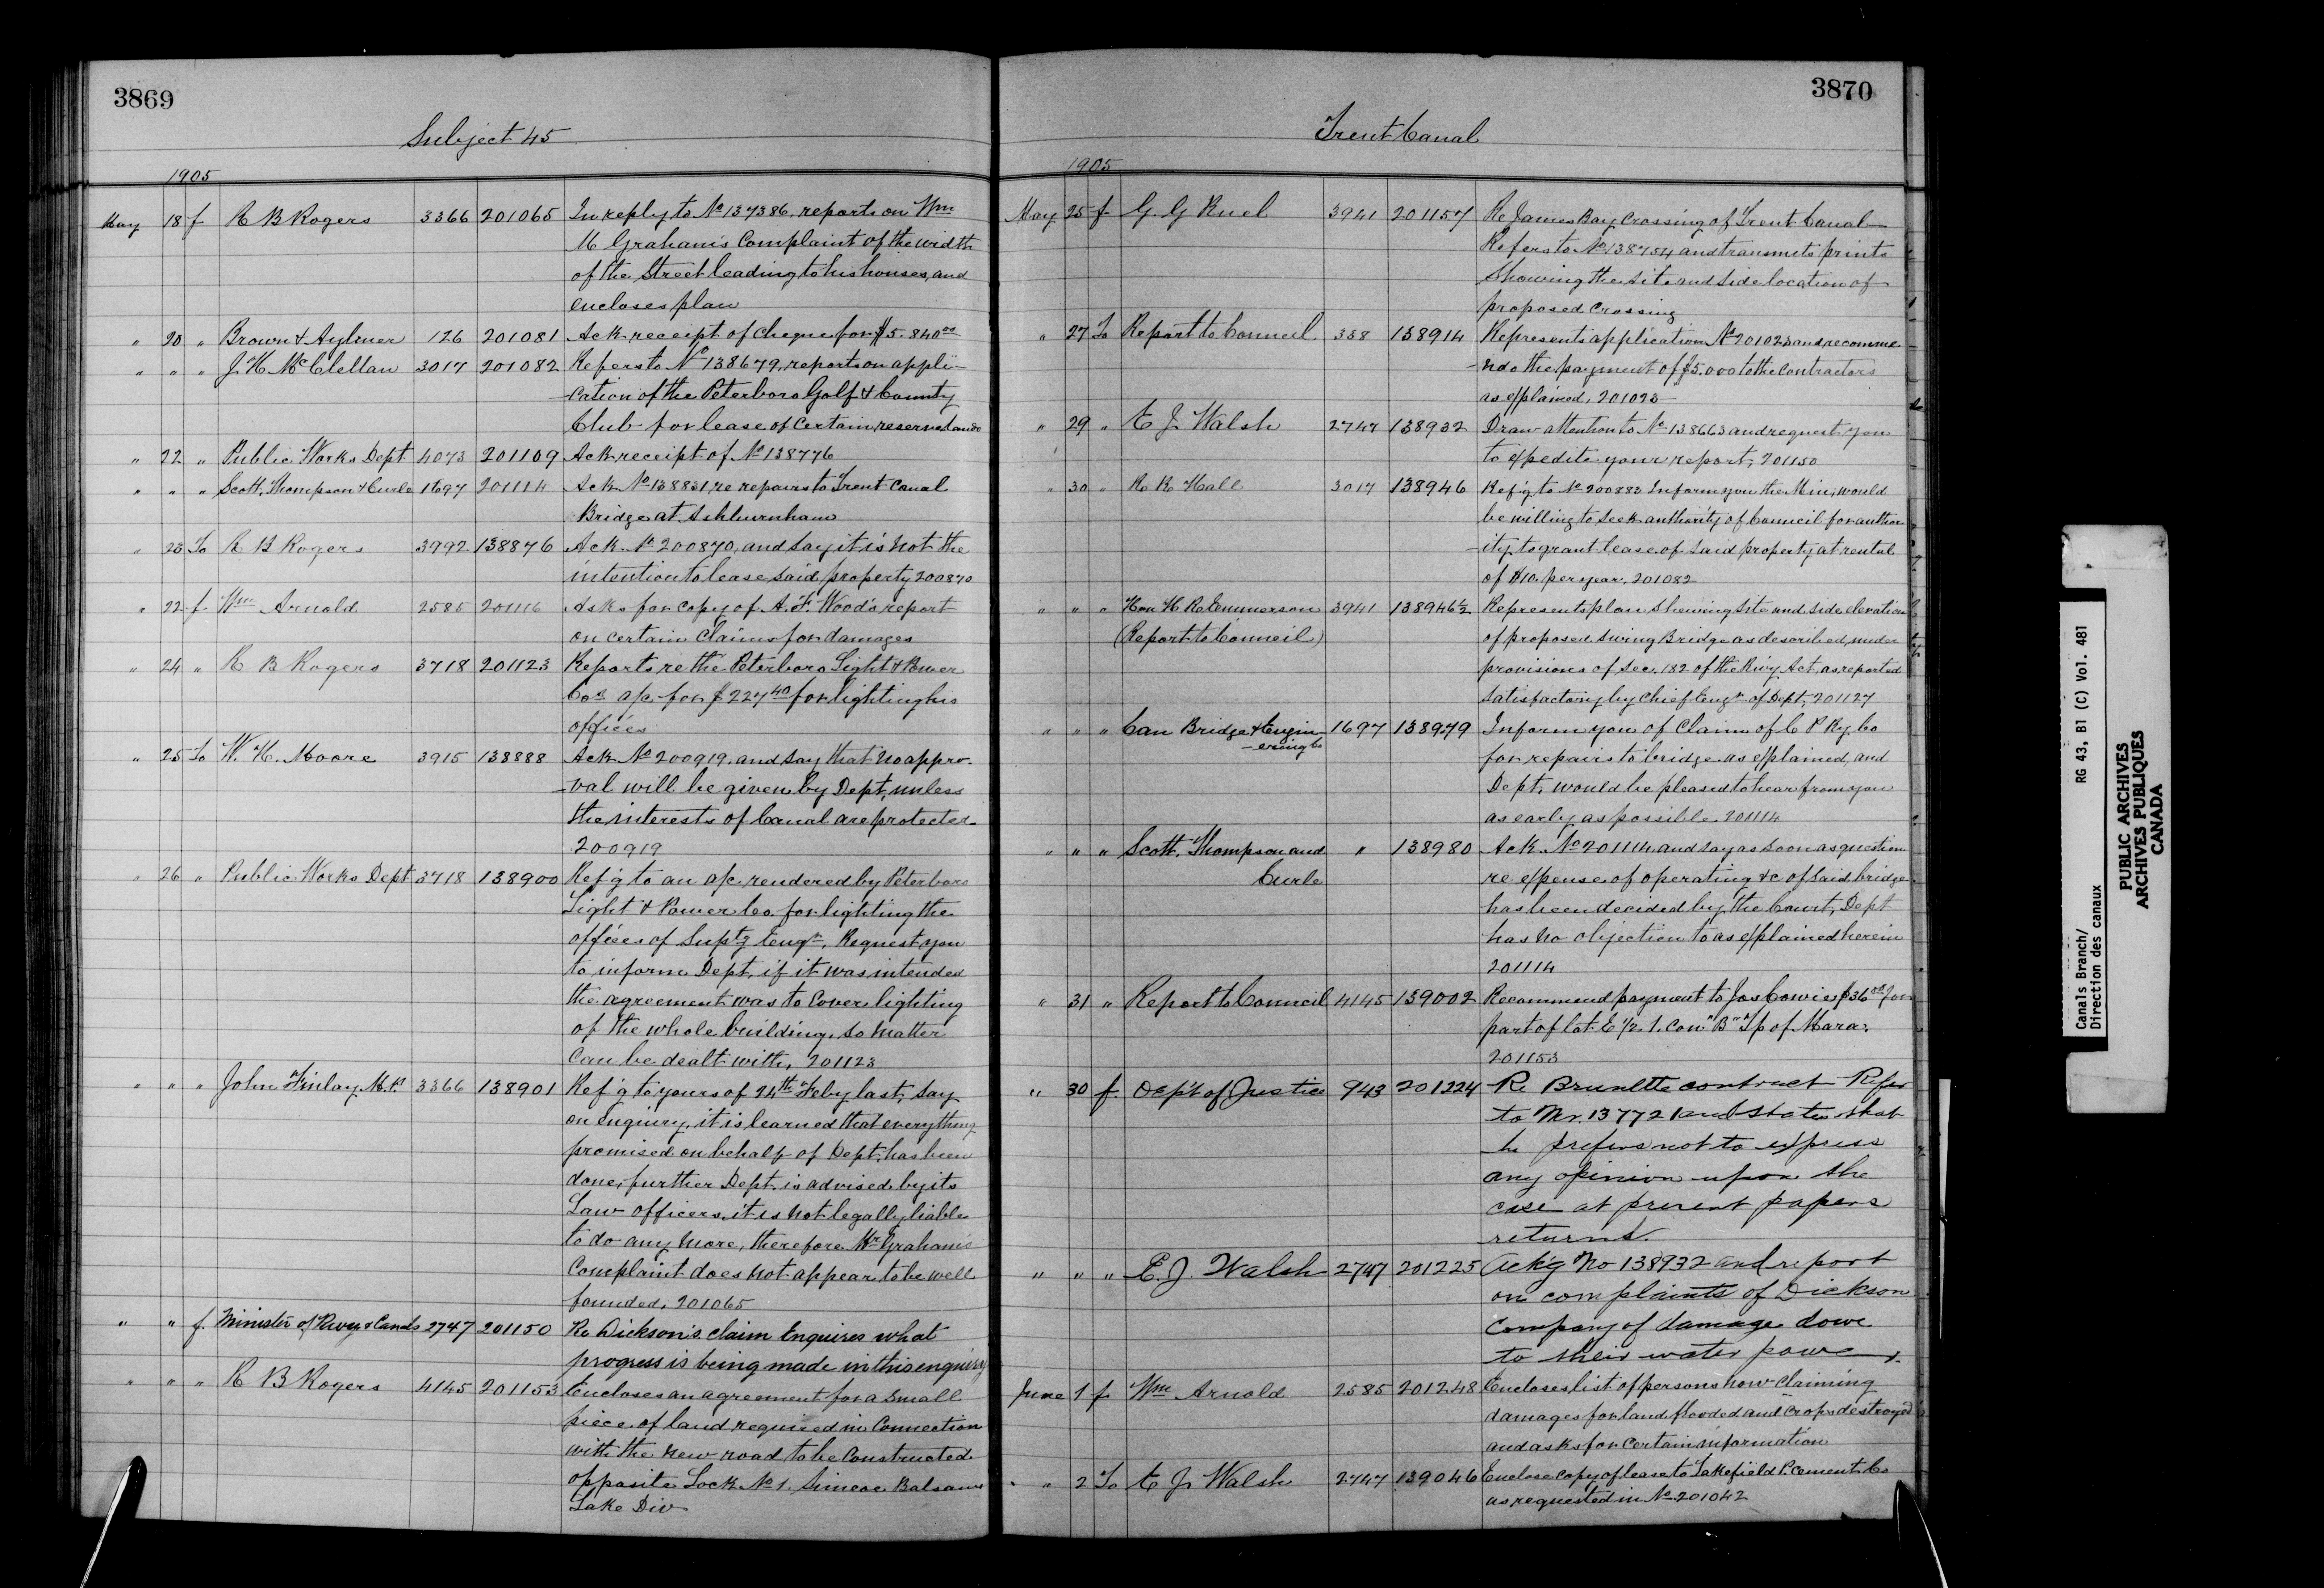 3869
Subject 45
1905
May 18 f R B Rogers 3366 201065 In reply to No 137386, reports on Wm
M Graham's Complaint of the width
of the Street leading to his houses, and
encloses plan
" 20 " Brown & Aylmer 126 201081 Ack receipt of cheque for $5.840 00
" " " J. H. McClellan 3017 201082 Refers to No 138679, reports on appli-
-cation of the Peterboro Golf & County
Club for lease of certain reserve lands
" 22 " Public Works Dept 4073 201109 Ack receipt of No 138776
" " " Scott, Thompson & Curle 1697 201114 Ack No 138831, re repairs to Trent Canal
Bridge at Ashburnham
" 23 To R B Rogers 3992 138876 Ack No 200870, and say it is not the
intention to lease said property 200870
" 22 f. Wm Arnold 2585 201116 Asks for copy of A. F. Wood's report
on certain Claims for damages
" 24 " R B Rogers 3718 201123 Reports re the Peterboro Light & Power
Cos a/c for $227 40 for lighting his
offices
" 25 To W. H. Moore 3915 138888 Ack No 200919, and say that no appro-
-val will be given by Dept, unless
the interests of Canal are protected
200919
" 26 " Public Works Dept 3718 138900 Ref'g to an a/c rendered by Peterboro
Light & Power Co. for lighting the
offices of Suptg Engr, Request you
to inform Dept, if it was intended
the agreement was to Cover lighting
of the whole building, so matter
can be dealt with, 201123
" " " John Finlay M.P. 3366 138901 Ref'g to yours of 24th Feby last, say
on enquiry, it is learned that everything
promised on behalf of Dept, has been
done, further Dept is advised by its
Law officers, it is not legally liable
to do any more, therefore Mr Graham's
Complaint does not appear to be well
founded, 201065
" " f. Minister of Rwys & Canals 2747 201150 Re Dickson's claim Enquires what
progress is being made in this enquiry
" " " R B Rogers 4145 201153 Encloses an agreement for a small
piece of land required in Connection
with the new road to be constructed
opposite Lock No 1. Simcoe Balsam
Lake Div
3870
Trent Canal
1905
May 25 f G. G Ruel 3941 201157 Re James Bay Crossing of Trent Canal
Refers to No 138754 and transmits prints
Showing the site and side location of
proposed crossing
" 27 To Report to Council 338 138914 Represents application No 201023 and recomme
-nds the payment of $5.000 to the Contractors
as explained, 201023
" 29 " E J Walsh 2747 138932 Draw attention to No 138663 and request you
to expedite your report, 201150
" 30 " R R Hall 3017 138946 Ref'g to No 200883 Inform you the Min, would
be willing to seek authority of Council for author
-ity to grant lease of said property at rental
of $10. per year, 201082
" " " Hon H R Emmerson 3941 138946½ Represents plan shewing site and side elevation
(Report to Council) of proposed swing Bridge as described, under
provisions of sec. 182 of the Rwy Act, as reported
satisfactory by Chief Engr of Dept, 201127
" " " Can Bridge & Engin 1697 138979 Inform you of Claim of C P Ry. Co
-eering Co for repairs to bridge as explained, and
Dept, would be pleased to hear from you
as early as possible 201114
" " " Scott, Thompson and " 138980 Ack No 201114, and say as soon as question
Curle re expense of operating &c of said bridge
has been decided by the Court, Dept
has no objection to as explained herein
201114
" 31 " Report to Council 4145 139002 Recommend payment to Jos Cowie $36 00 for
part of lot E ½ 1. Con "B" Tp of Mara,
201153
" 30 f. Dep't of Justice 943 201224 Re Brunette contract Refer
to Nr. 137721 and states that
he prefers not to express
any opinion upon the
case at present papers
returned.
" " " E. J. Walsh 2747 201225 Ack'g No 138932 and report
on complaints of Dickson
Company of damage done
to their water power.
June 1 f Wm Arnold 2585 201248 Encloses list of persons now claiming
damages for land flooded and crops destroyed
and asks for certain information
" 2 To E J Walsh 2747 139046 Enclose copy of lease to Lakefield P. Cement Co
as requested in No 201042
Canals Branch/ RG 43, B1 (C) Vol. 481
Direction des canaux
PUBLIC ARCHIVES
ARCHIVES PUBLIQUES
CANADA